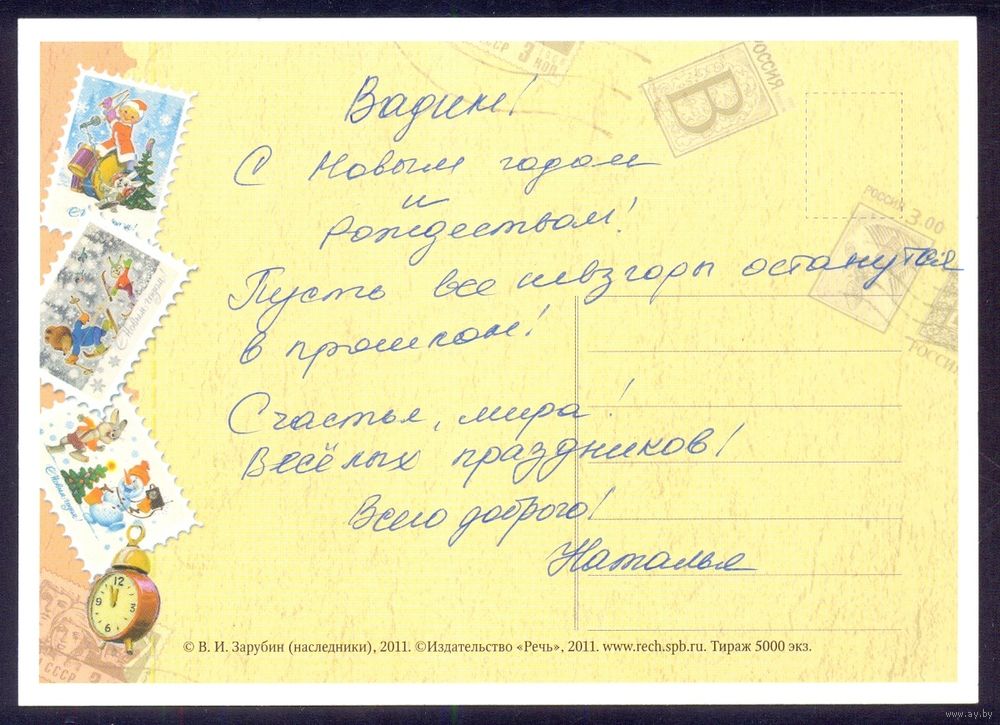 Вадим!
С Новым годом
и
Рождеством!
Пусть все невзгоды останутся
в прошлом!
Счастья, мира!
Весёлых праздников!
Всего доброго!
Наталья
© В. И. Зарубин (наследники), 2011. ©Издательство «Речь», 2011. www.rech.spb.ru. Тираж 5000 экз.
СССР
3
КОП
РОССИЯ
В
РОССИЯ 3.00
РОССИЯ
С Новым годом!
С Новым годом!
12
3
6
9
СССР
www.ay.by